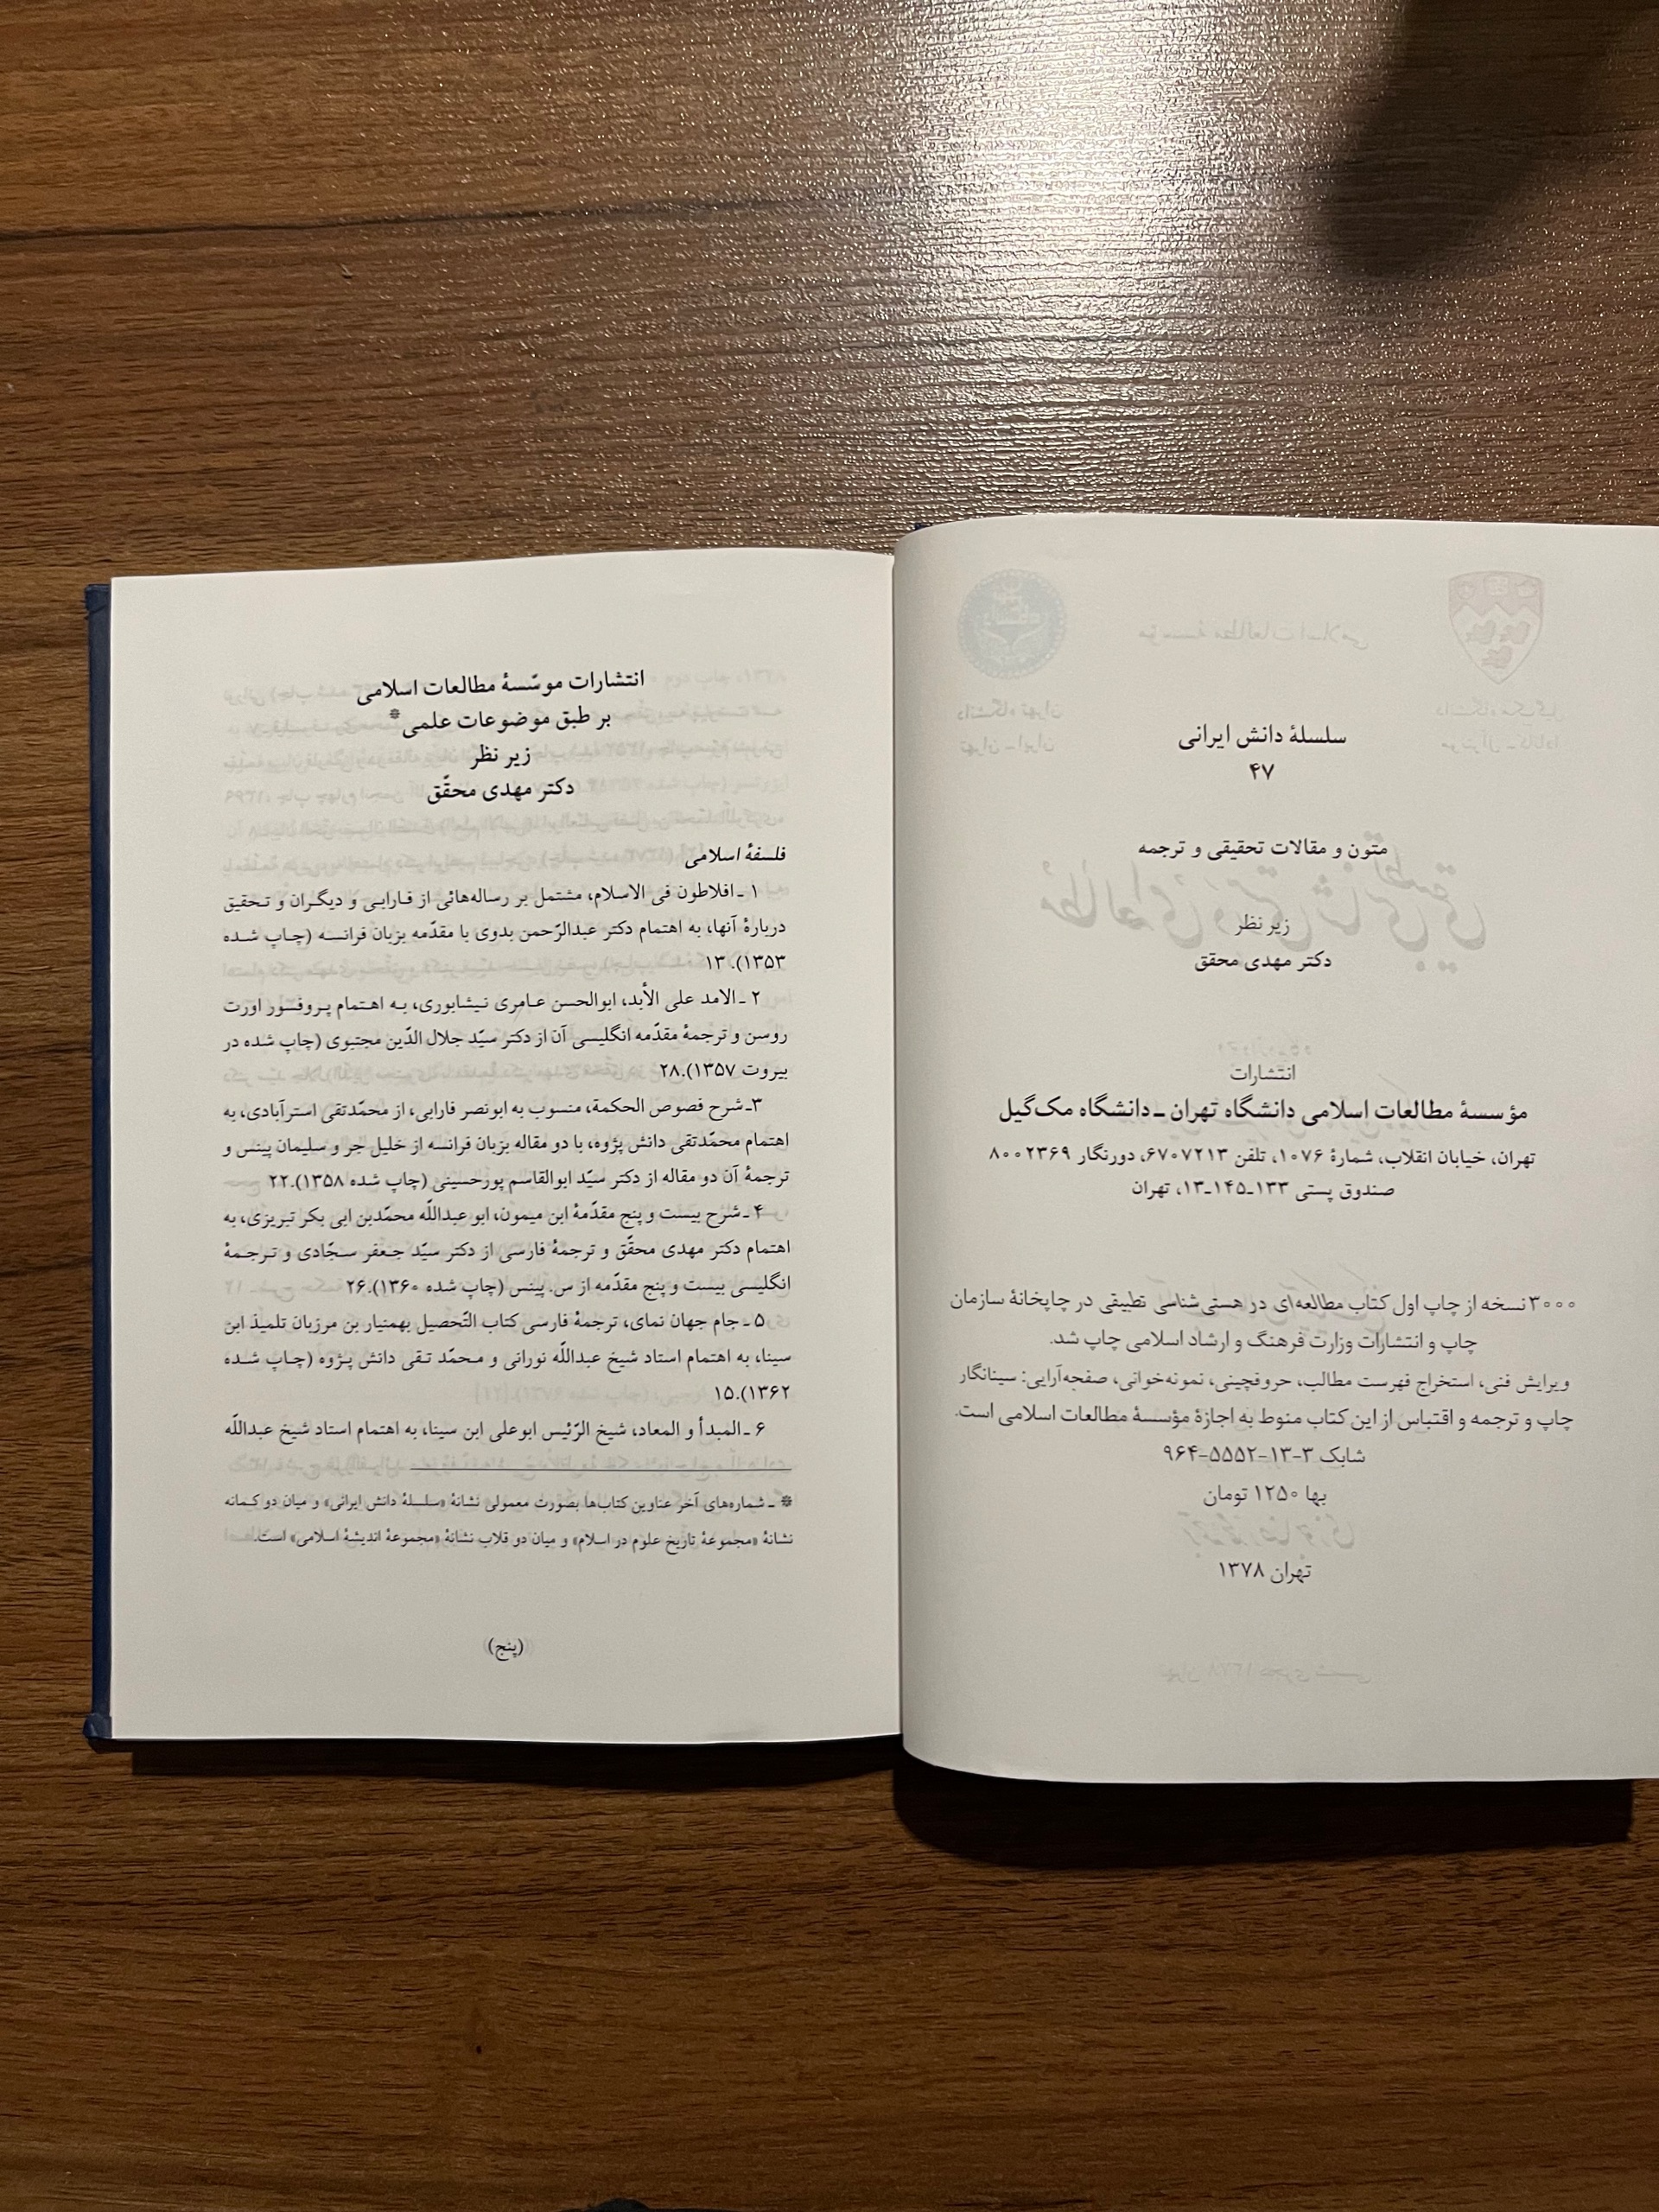 سلسلهٔ دانش ایرانی
۴۷
متون و مقالات تحقیقی و ترجمه
زیر نظر
دکتر مهدی محقق
انتشارات
مؤسسهٔ مطالعات اسلامی دانشگاه تهران ـ دانشگاه مک‌گیل
تهران، خیابان انقلاب، شمارهٔ ۱۰۷۶، تلفن ۶۷۰۷۲۱۳، دورنگار ۸۰۰۲۳۶۹
صندوق پستی ۱۳۳ـ۱۴۵ـ۱۳، تهران
۳۰۰۰ نسخه از چاپ اول کتاب مطالعه‌ای در هستی‌شناسی تطبیقی در چاپخانهٔ سازمان
چاپ و انتشارات وزارت فرهنگ و ارشاد اسلامی چاپ شد.
ویرایش فنی، استخراج فهرست مطالب، حروفچینی، نمونه‌خوانی، صفحه‌آرایی: سینانگار
چاپ و ترجمه و اقتباس از این کتاب منوط به اجازهٔ مؤسسهٔ مطالعات اسلامی است.
شابک ۳-۱۳-۵۵۵۲-۹۶۴
بها ۱۲۵۰ تومان
تهران ۱۳۷۸
انتشارات موسّسهٔ مطالعات اسلامی
بر طبق موضوعات علمی*
زیر نظر
دکتر مهدی محقّق
فلسفهٔ اسلامی
۱ ـ افلاطون فی الاسلام، مشتمل بر رساله‌هائی از فارابی و دیگران و تحقیق
دربارهٔ آنها، به اهتمام دکتر عبدالرّحمن بدوی با مقدّمه بزبان فرانسه (چاپ شده
۱۳۵۳). ۱۳
۲ ـ الامد علی الأبد، ابوالحسن عامری نیشابوری، به اهتمام پروفسور اورت
روسن و ترجمهٔ مقدّمه انگلیسی آن از دکتر سیّد جلال الدّین مجتبوی (چاپ شده در
بیروت ۱۳۵۷).۲۸
۳ـ شرح فصوص الحکمة، منسوب به ابونصر فارابی، از محمّدتقی استرآبادی، به
اهتمام محمّدتقی دانش پژوه، با دو مقاله بزبان فرانسه از خلیل جر و سلیمان پینس و
ترجمهٔ آن دو مقاله از دکتر سیّد ابوالقاسم پورحسینی (چاپ شده ۱۳۵۸).۲۲
۴ ـ شرح بیست و پنج مقدّمهٔ ابن میمون، ابو عبداللّه محمّدبن ابی بکر تبریزی، به
اهتمام دکتر مهدی محقّق و ترجمهٔ فارسی از دکتر سیّد جعفر سجّادی و ترجمهٔ
انگلیسی بیست و پنج مقدّمه از س. پینس (چاپ شده ۱۳۶۰).۲۶
۵ ـ جام جهان نمای، ترجمهٔ فارسی کتاب التّحصیل بهمنیار بن مرزبان تلمیذ ابن
سینا، به اهتمام استاد شیخ عبداللّه نورانی و محمّد تقی دانش پژوه (چاپ شده
۱۳۶۲).۱۵
۶ ـ المبدأ و المعاد، شیخ الرّئیس ابوعلی ابن سینا، به اهتمام استاد شیخ عبداللّه
* ـ شماره‌های آخر عناوین کتاب‌ها بصورت معمولی نشانهٔ «سلسلهٔ دانش ایرانی» و میان دو کمانه
نشانهٔ «مجموعهٔ تاریخ علوم در اسلام» و میان دو قلاب نشانهٔ «مجموعهٔ اندیشهٔ اسلامی» است.
(پنج)